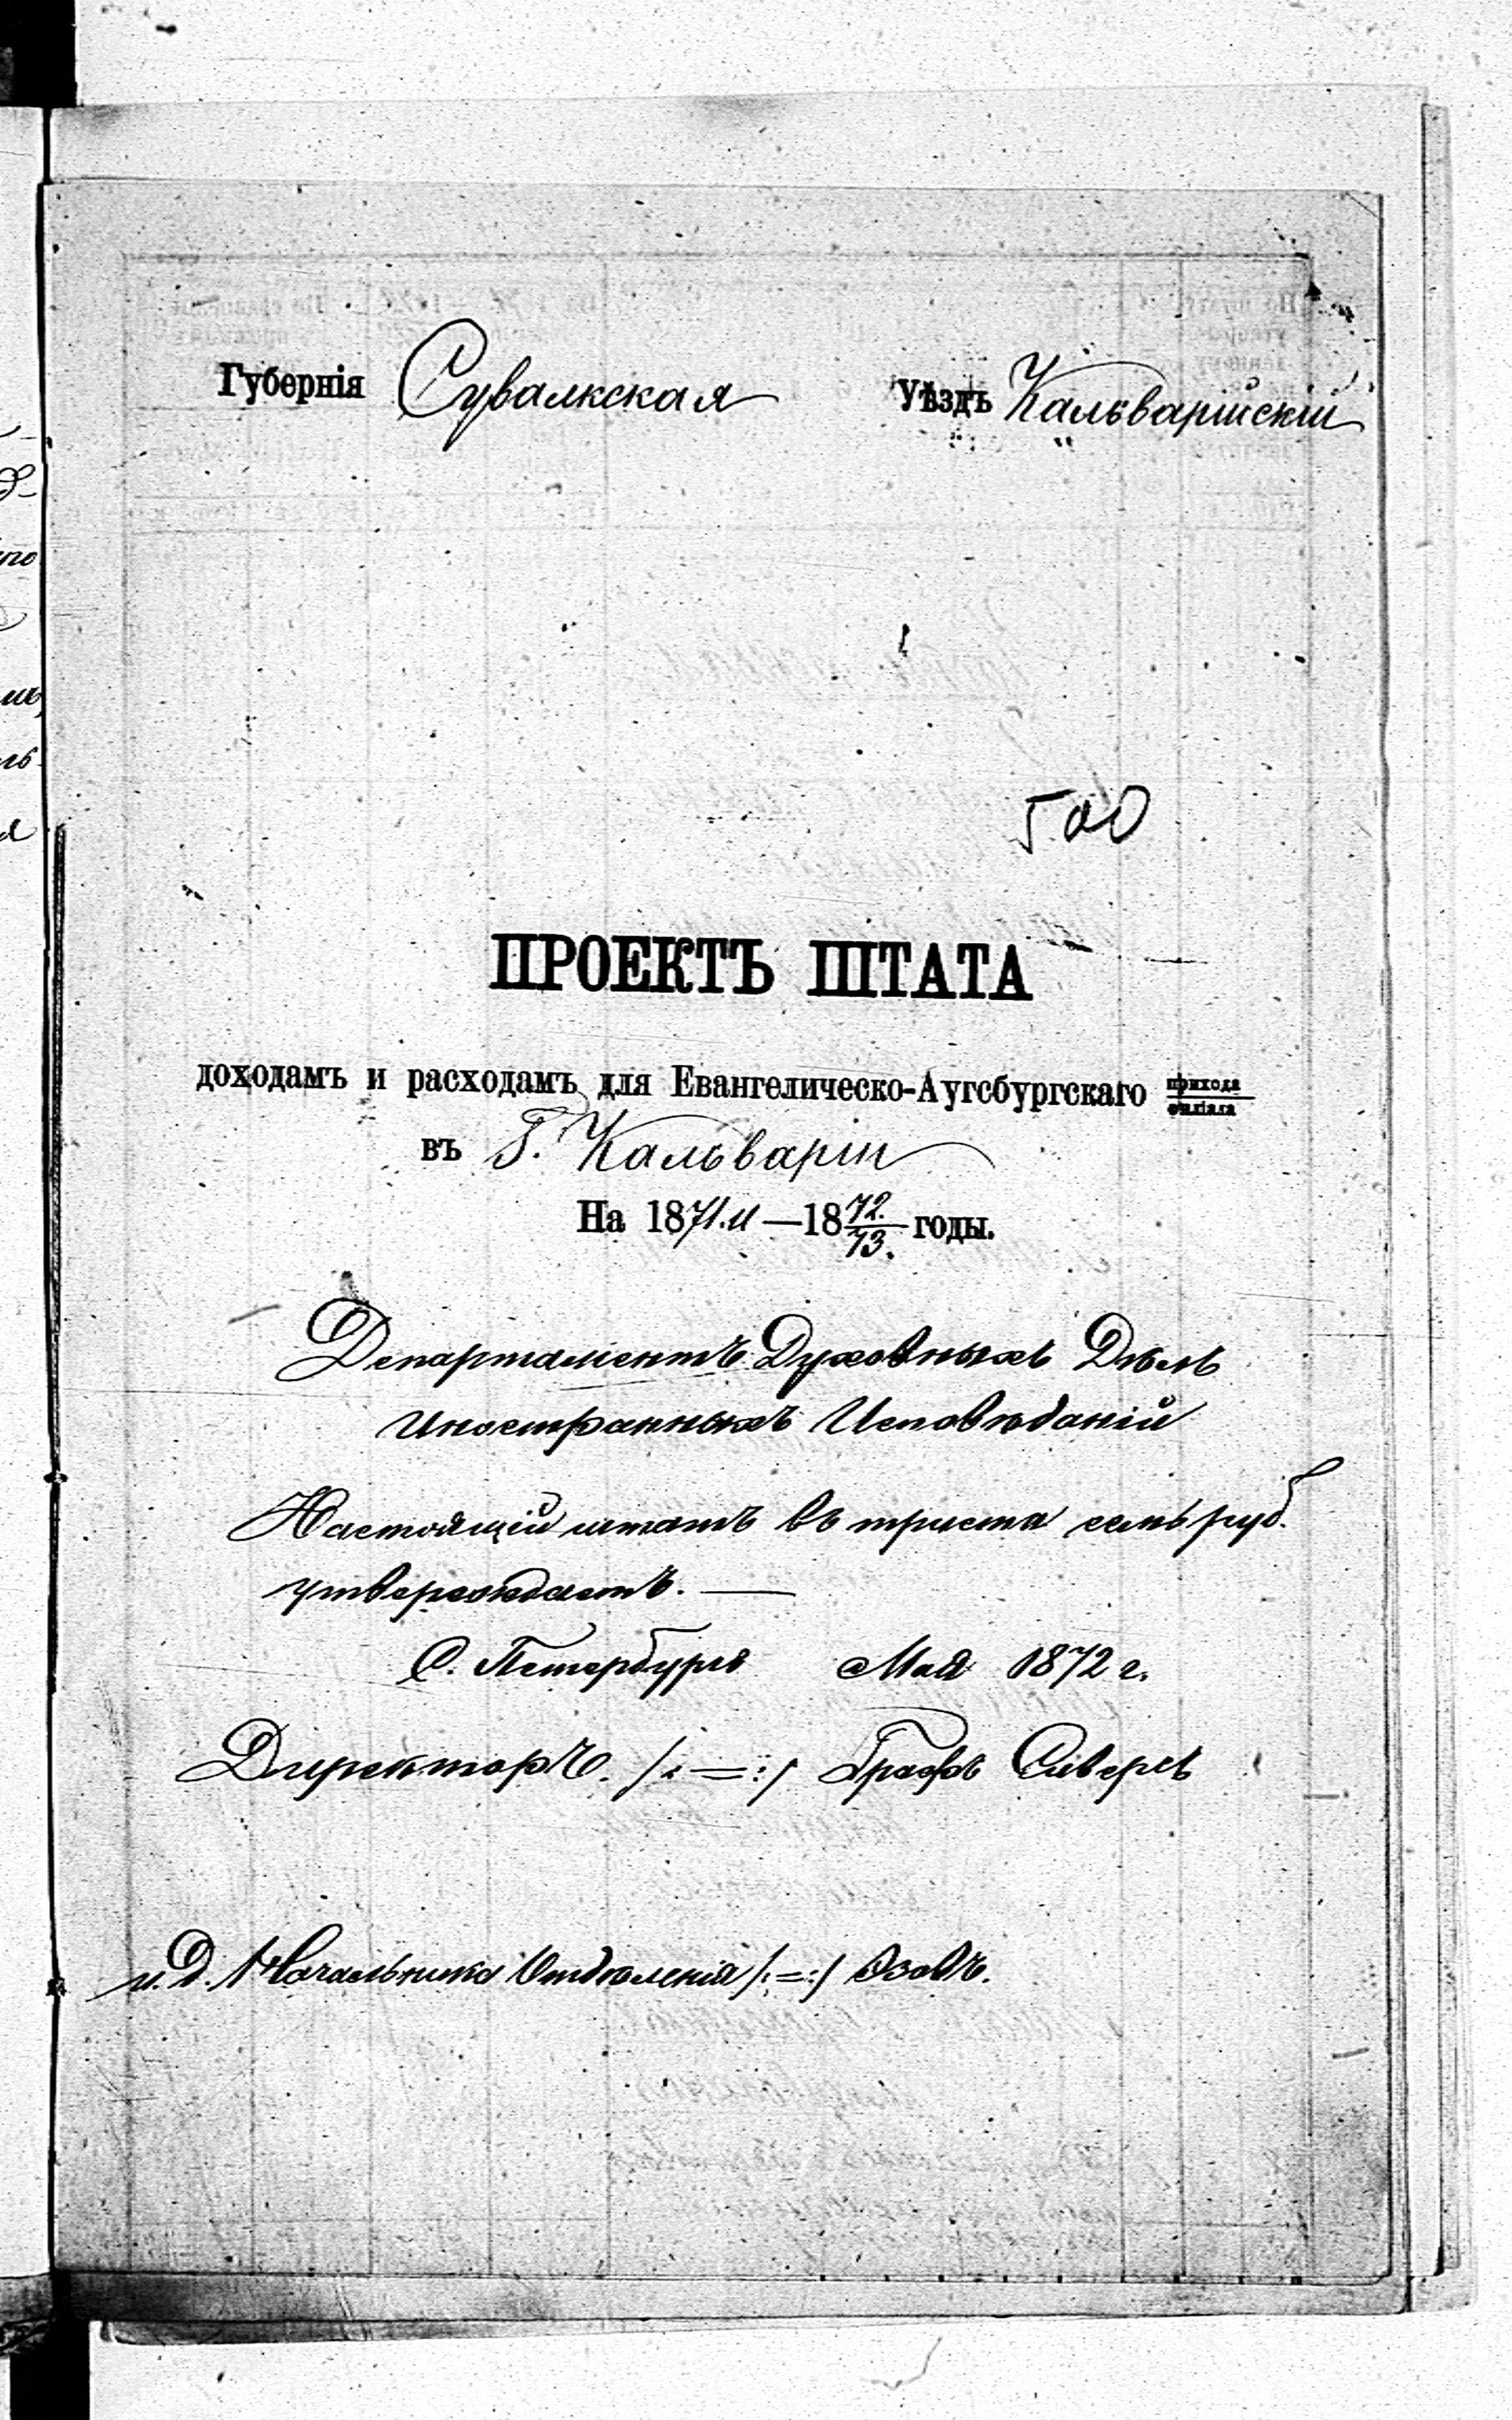 Губернія Сувалкская Уѣздъ Кальварійскій
500
ПРОЕКТЪ ШТАТА
доходамъ и расходамъ для Евангелическо-Аугсбургскаго прихода
филіала
въ Г. Кальваріи
На 1871.и—1872.
73. годы.
Департаментъ Духовныхъ Дѣлъ
Иностранныхъ Исповѣданій
Настоящій штатъ въ триста семь руб.
утверждаетъ. —
С. Петербургъ Мая 1872 г.
Директоръ. /:=:/ Графъ Сиверсъ
и. д. Начальника Отдѣленія /:=:/ Зовъ.